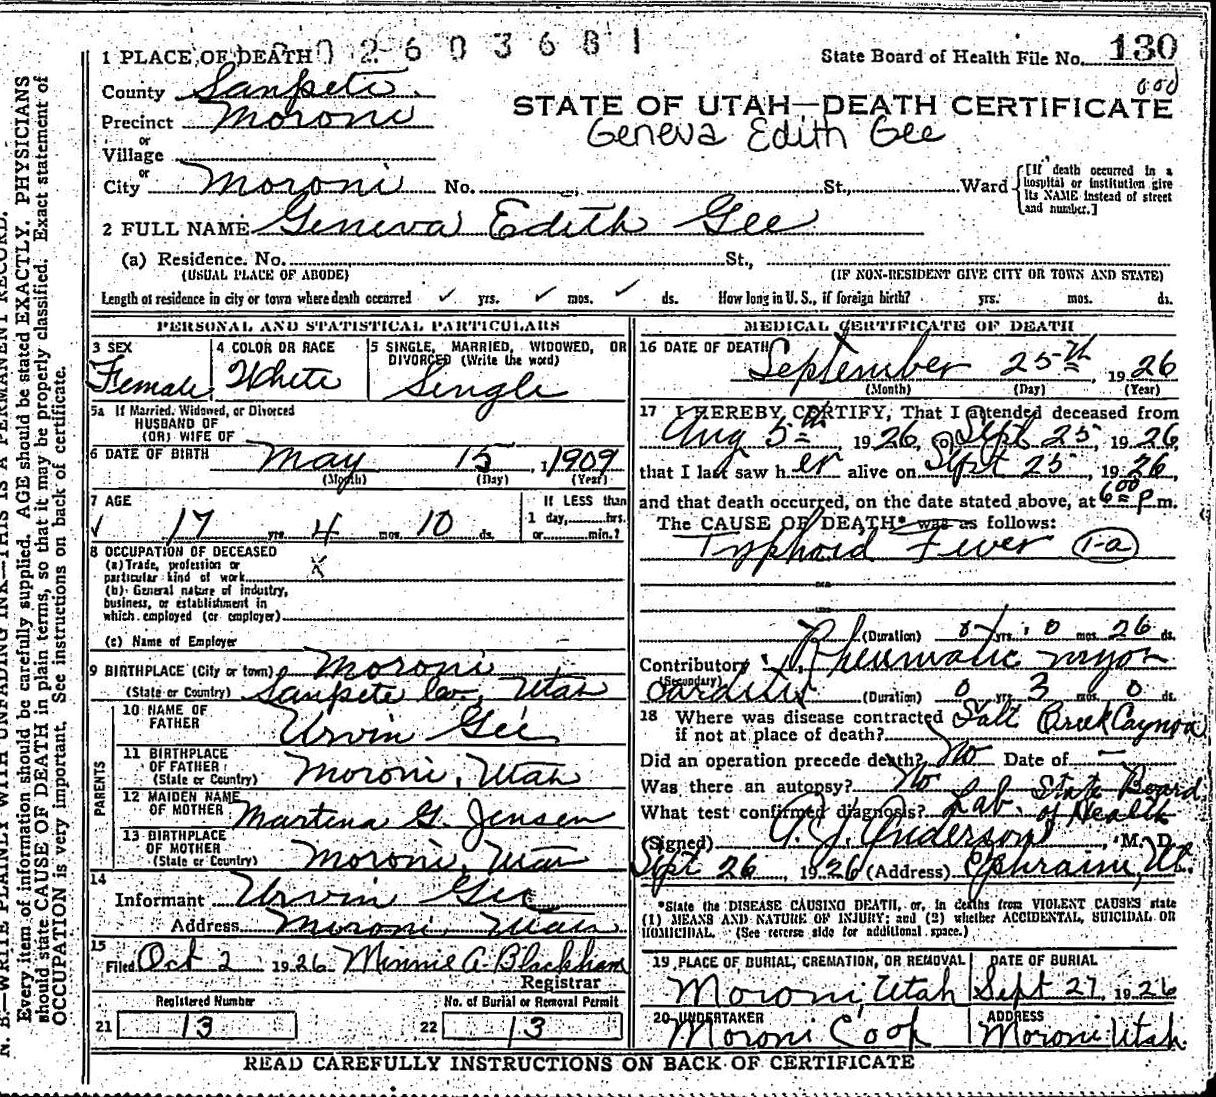 N. B.—WRITE PLAINLY WITH UNFADING INK—THIS IS A PERMANENT RECORD.
Every item of information should be carefully supplied. AGE should be stated EXACTLY. PHYSICIANS
should state CAUSE OF DEATH in plain terms, so that it may be properly classified. Exact statement of
OCCUPATION is very important. See instructions on back of certificate.
1 PLACE OF DEATH 002603681
State Board of Health File No. 130
County Sanpete
STATE OF UTAH—DEATH CERTIFICATE
Precinct Moroni
Geneva Edith Gee
or
Village
or
City Moroni No. St., Ward
[If death occurred in a
hospital or institution give
its NAME instead of street
and number.]
2 FULL NAME Geneva Edith Gee
(a) Residence. No. St.,
(USUAL PLACE OF ABODE) (IF NON-RESIDENT GIVE CITY OR TOWN AND STATE)
Length of residence in city or town where death occurred ✓ yrs. ✓ mos. ✓ ds. How long in U. S., if foreign birth? yrs. mos. ds.
PERSONAL AND STATISTICAL PARTICULARS
3 SEX Female
4 COLOR OR RACE White
5 SINGLE, MARRIED, WIDOWED, OR
DIVORCED (Write the word)
Single
5a If Married, Widowed, or Divorced
HUSBAND OF
(OR) WIFE OF
6 DATE OF BIRTH May 15, 1909
(Month) (Day) (Year)
7 AGE
17 yrs. 4 mos. 10 ds.
If LESS than
1 day, hrs.
or min.?
8 OCCUPATION OF DECEASED
(a) Trade, profession or
particular kind of work x
(b) General nature of industry,
business, or establishment in
which employed (or employer)
(c) Name of Employer
9 BIRTHPLACE (City or town) Moroni
(State or Country) Sanpete Co., Utah
PARENTS
10 NAME OF
FATHER Urvin Gee
11 BIRTHPLACE
OF FATHER
(State or Country) Moroni, Utah
12 MAIDEN NAME
OF MOTHER Martena G. Jensen
13 BIRTHPLACE
OF MOTHER
(State or Country) Moroni, Utah
14
Informant Urvin Gee
Address Moroni, Utah
15
Filed Oct 2 1926 Minnie A. Blackham
Registrar
Registered Number
21 13
No. of Burial or Removal Permit
22 13
MEDICAL CERTIFICATE OF DEATH
16 DATE OF DEATH
September 25th, 1926
(Month) (Day) (Year)
17 I HEREBY CERTIFY, That I attended deceased from
Aug 5th 1926, to Sept 25, 1926,
that I last saw her alive on Sept 25, 1926,
and that death occurred, on the date stated above, at 6 00 p m.
The CAUSE OF DEATH* was as follows:
Typhoid Fever 1-a
(Duration) 0 yrs. 0 mos. 26 ds.
Contributory Rheumatic myo-
(Secondary)
carditis (Duration) 0 yrs 3 mos. 0 ds.
18 Where was disease contracted
if not at place of death? Salt Creek Caynon
Did an operation precede death? No Date of —
Was there an autopsy? No
What test confirmed diagnosis? Lab. State Board of Health
(Signed) A. J. Anderson, M. D.
Sept 26, 1926 (Address) Ephraim, Ut.
*State the DISEASE CAUSING DEATH, or, in deaths from VIOLENT CAUSES state
(1) MEANS AND NATURE OF INJURY; and (2) whether ACCIDENTAL, SUICIDAL OR
HOMICIDAL. (See reverse side for additional space.)
19 PLACE OF BURIAL, CREMATION, OR REMOVAL
Moroni, Utah
DATE OF BURIAL
Sept 27, 1926
20 UNDERTAKER
Moroni Coop
ADDRESS
Moroni Utah
READ CAREFULLY INSTRUCTIONS ON BACK OF CERTIFICATE